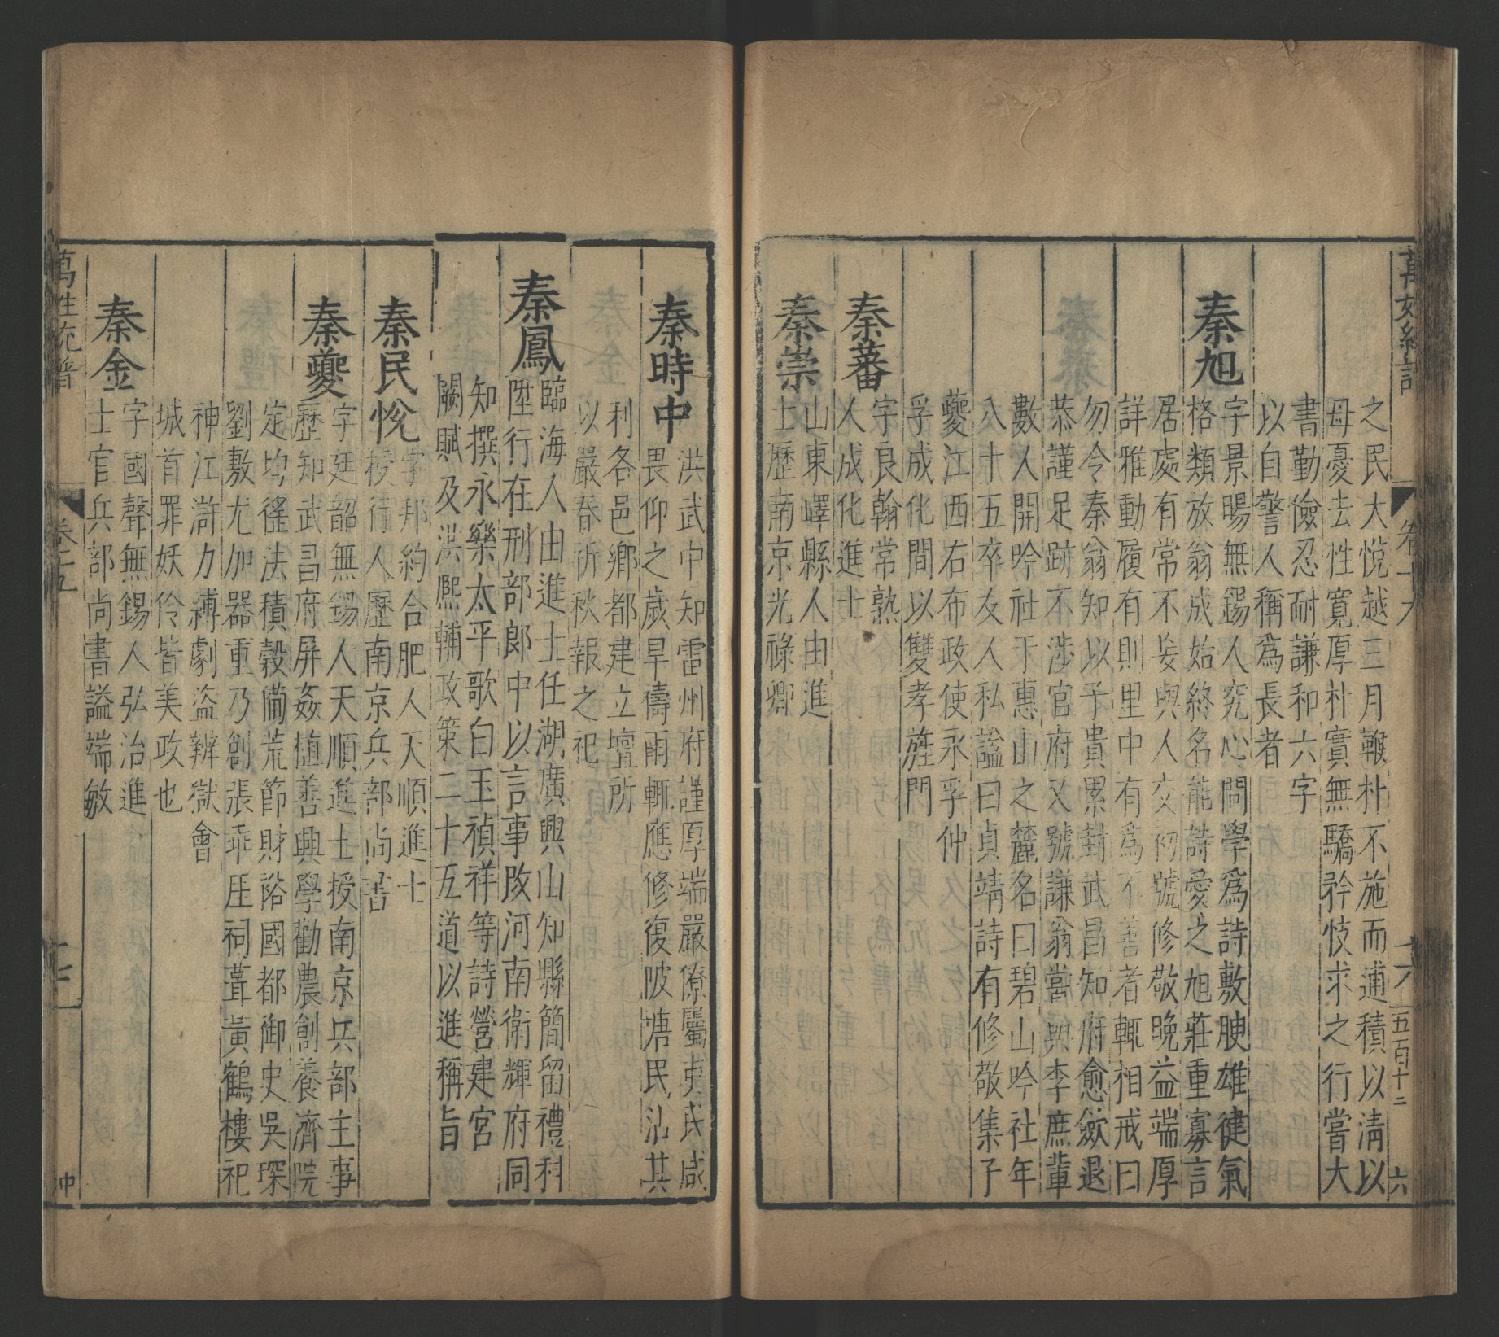 之民大悅越三月鞭朴不施而逋積以清以
母憂去性寬厚朴實無驕矜忮求之行嘗大
書勤儉忍耐謙和六字
以自警人稱為長者
秦旭
字景暘無錫人究心問學為詩敷腴雄健氣
格類放翁成始終名能詩愛之旭莊重寡言
居處有常不妄與人交初號修敬晚益端厚
詳雅動履有則里中有為不善者輒相戒曰
勿令秦翁知以子貴累封武昌知府愈斂退
恭謹足跡不涉官府又號謙翁嘗與李庶輩
數人開吟社于惠山之麓名曰碧山吟社年
八十五卒友人私謚曰貞靖詩有修敬集子
夔江西右布政使永孚仲
孚成化間以雙孝旌門
秦蕃
字良翰常熟
人成化進士
秦崇
山東嶧縣人由進
士歷南京光祿卿
秦時中
洪武中知雷州府謹厚端嚴僚屬吏民咸
畏仰之歲旱禱雨輒應修復陂塘民沾其
利各邑鄉都建立壇所
以嚴春祈秋報之祀
秦鳳
臨海人由進士任湖廣興山知縣簡留禮科
陞行在刑部郎中以言事改河南衛輝府同
知撰永樂太平歌白玉禎祥等詩營建宮
闕賦及洪熙輔政策二十五道以進稱旨
秦民悅
字邦約合肥人天順進士
授行人歷南京兵部尚書
秦夔
字廷韶無錫人天順進士授南京兵部主事
歷知武昌府屏姦植善興學勸農創養濟院
定均徭法積穀備荒節財裕國都御史吳琛
劉敷尤加器重乃創張乖厓祠葺黃鶴樓祀
神江滸力縛劇盜辨獄會
城首罪妖伶皆美政也
秦金
字國聲無錫人弘治進
士官兵部尚書謚端敏
萬姓統譜